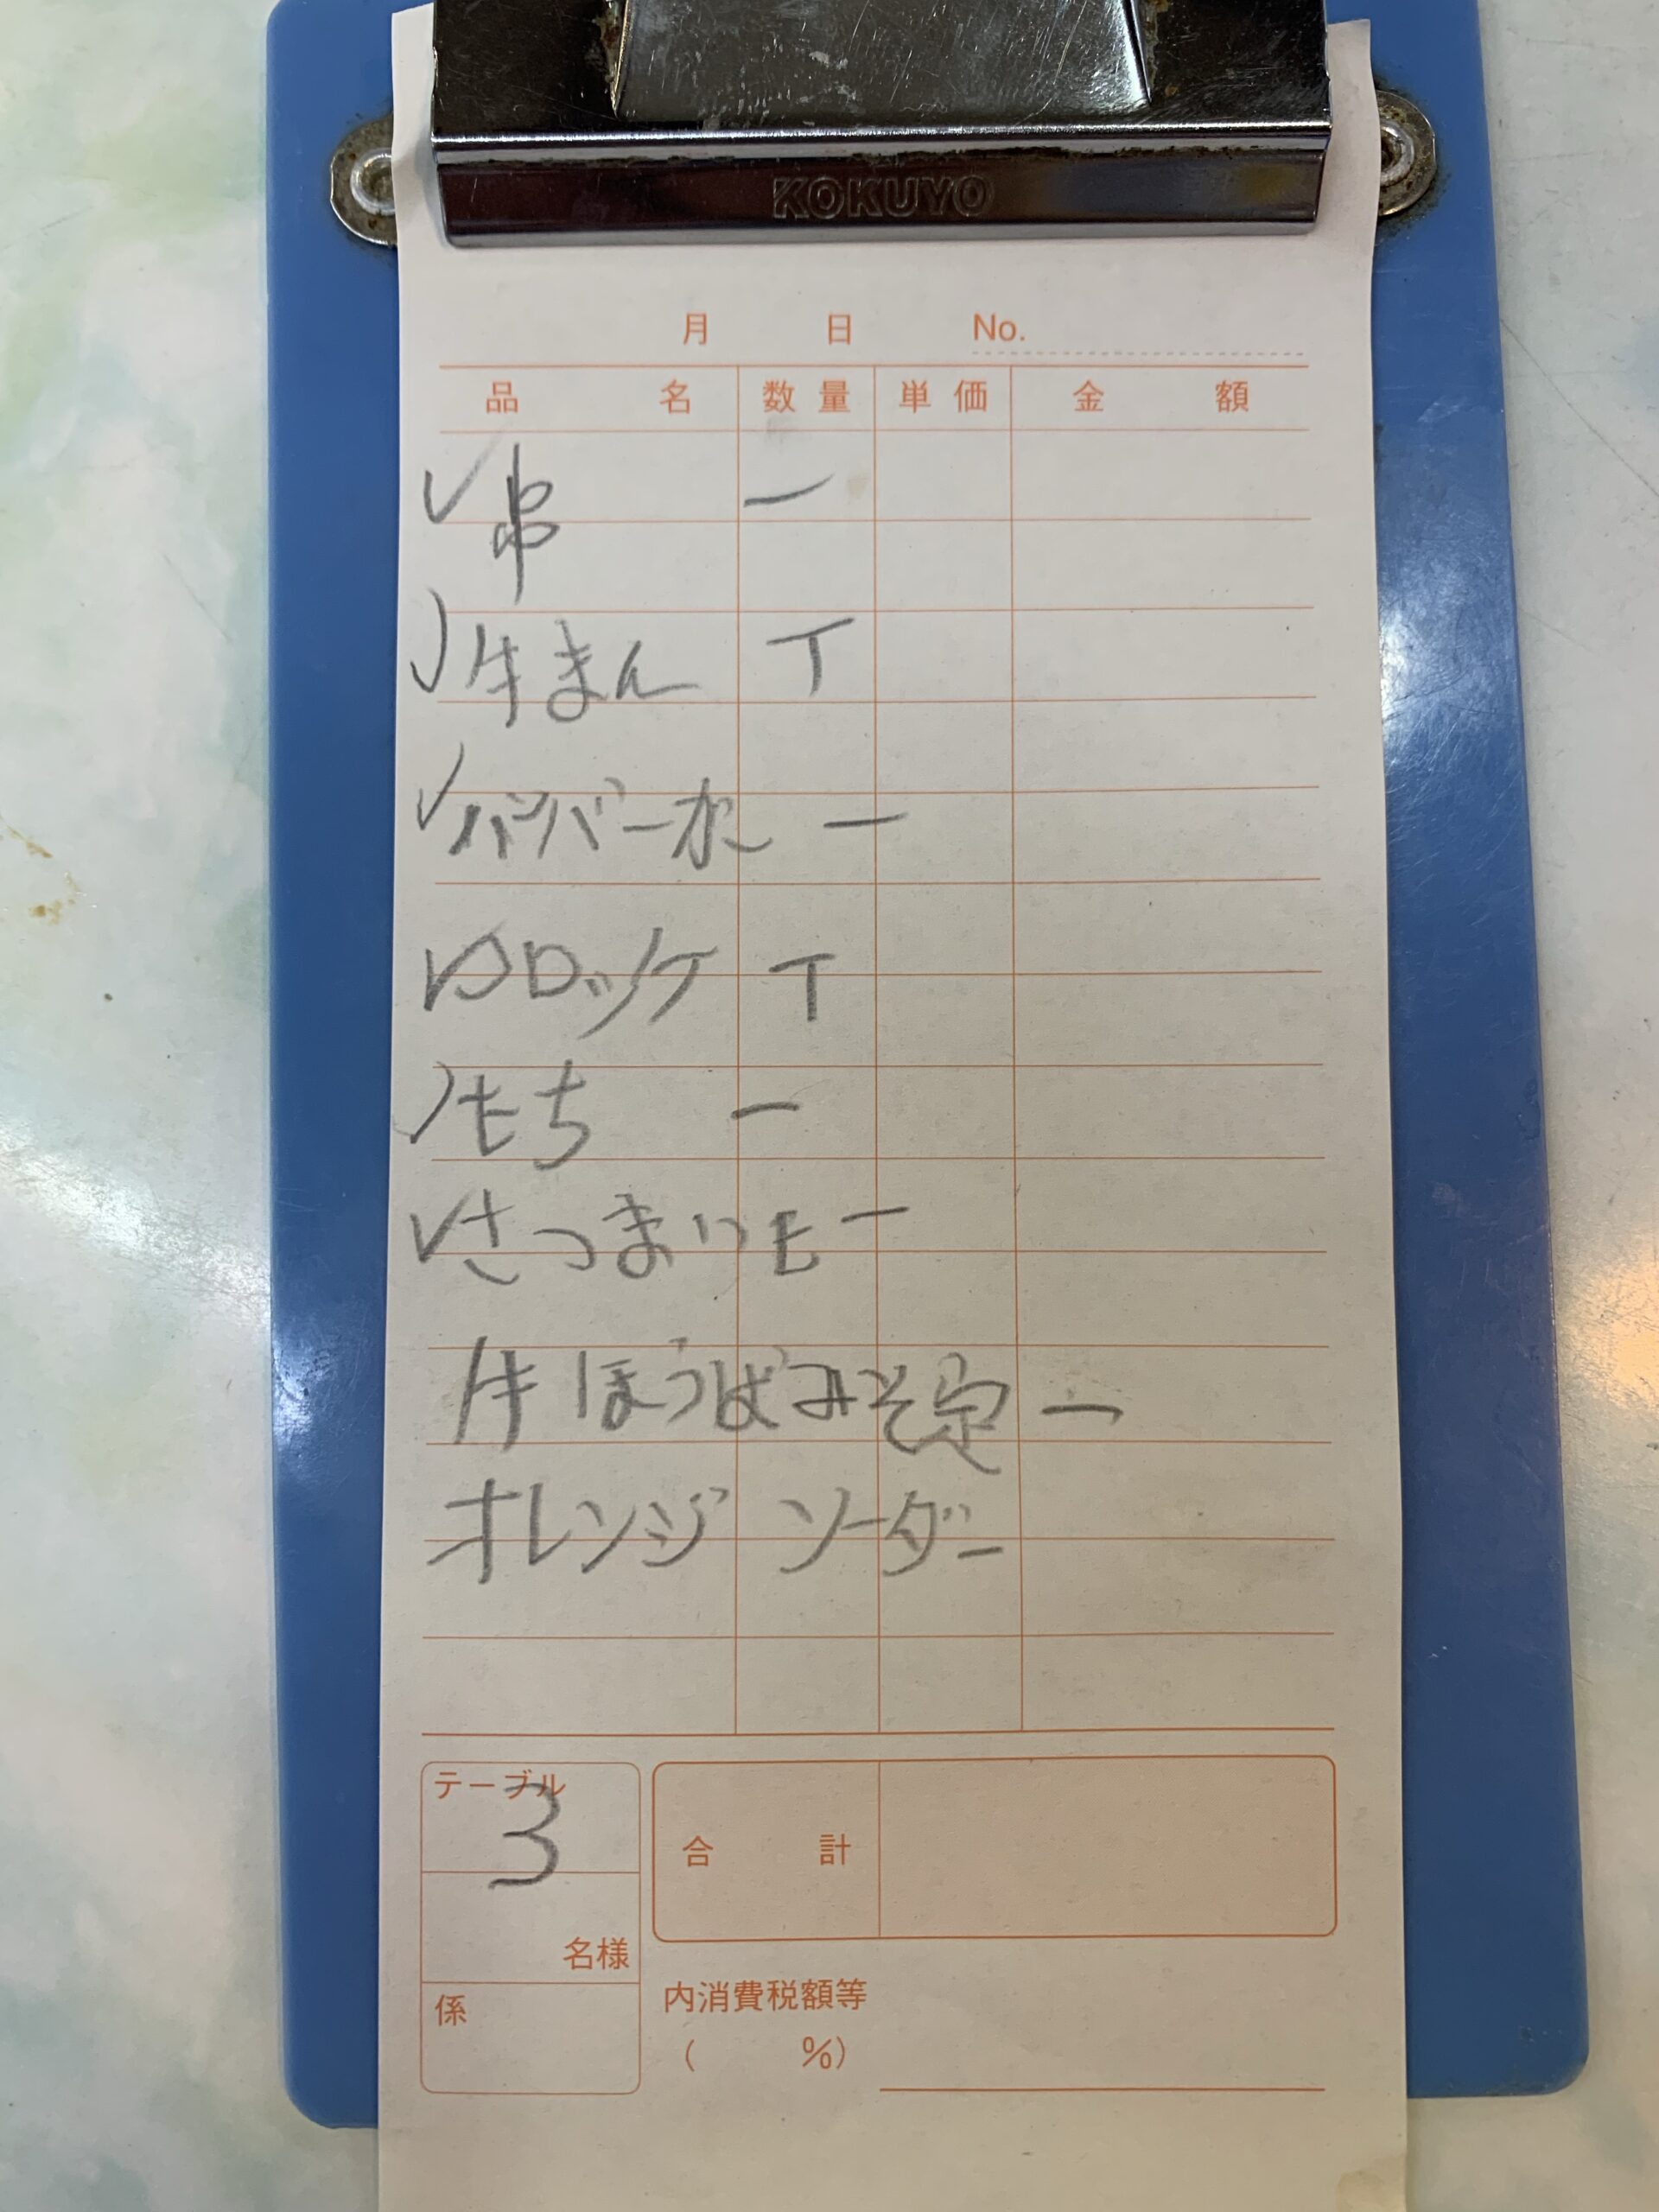 KOKUYO
月 日 No.
品名 数量 単価 金額
串 一
牛まん T
ハンバーガー 一
コロッケ T
もち 一
さつまいも 一
牛ほうばみそ定 一
オレンジ ソーダー
テーブル
3
合計
名様
係
内消費税額等
( %)